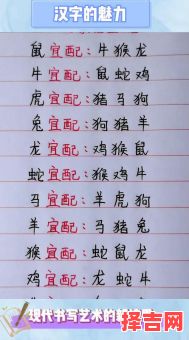 汉字的魅力
鼠宜配：牛猴龙
牛宜配：鼠蛇鸡
虎宜配：猪马狗
兔宜配：狗猪羊
龙宜配：鸡猴鼠
蛇宜配：猴鸡牛
马宜配：羊虎狗
羊宜配：马猪兔
猴宜配：蛇鼠龙
鸡宜配：龙蛇牛
现代书写艺术的
择吉网
zejiwang.com